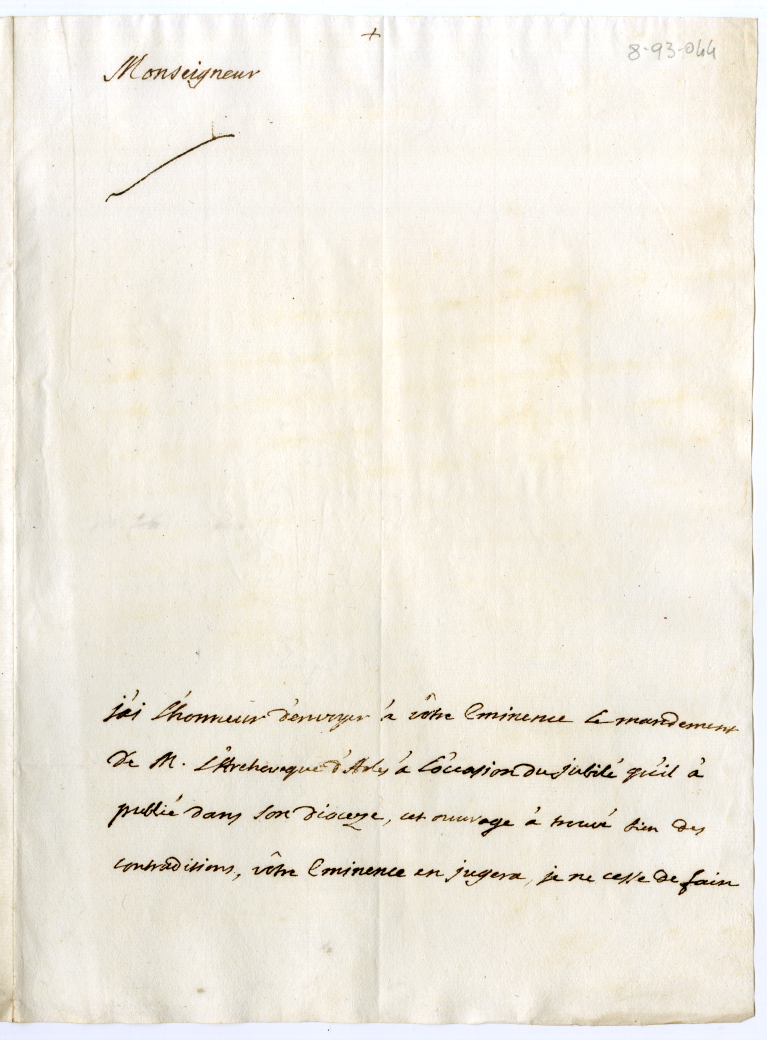 +
8-93-044
Monseigneur
j'ai L'honneur d'envoyer à vôtre Eminence Le mandement
de M. L'Archeveque d'Arles à L'occasion du jubilé qu'il à
publié dans son dioceze, cet ouvrage à trouvé bien des
contraditions, vôtre Eminence en jugera, je ne cesse de faire